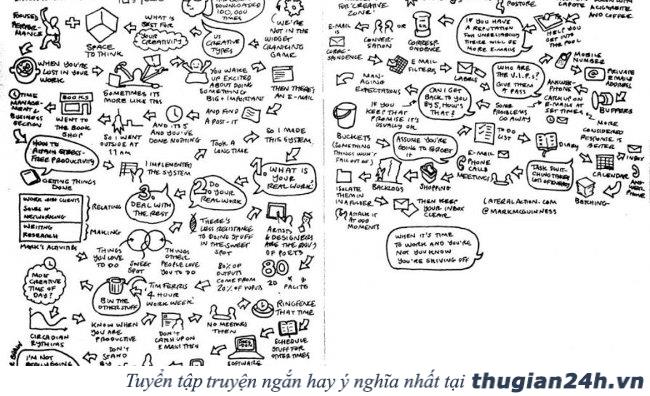 DOWNLOADED
IDC, ODU
TIMES
PERFOR-
MANCE
SPACE
TO THINK
WHAT IS
BEST FOR
YOUR
CREATIVITY?
US
CREATIVE
TYPES
WE'RE
NOT IN THE
WIDGET
CRANKING
GAME
WHEN YOU'RE
LOST IN YOUR
WORK
SOMETIMES IT'S
MORE LIKE THIS
YOU WAKE
UP EXCITED
ABOUT DOING
SOMETHING
BIG + IMPORTANT
THEN THERE'S
AN E-MAIL
AND FIND
A POST-IT
AND IT'S
11 AND
YOU'VE DONE
NOTHING
SO I WENT
OUTSIDE AT
11 AM
WENT TO
THE BOOK
SHOP
BOOKS
TIME
MANAGE-
MENT /
BUSINESS
SECTION
HOW TO
FREE PRODUCTIVITY
GETTING THINGS
DONE
I IMPLEMENTED
THE SYSTEM
TOOK A
LONG TIME
SO I MADE
THIS SYSTEM,
1. WHAT IS
YOUR
REAL WORK?
2. DO
YOUR
REAL WORK
3.
DEAL WITH
THE REST
WORK WITH CLIENTS
NETWORKING
WRITING
RESEARCH
MARK'S ACTIVITIES
RELATING
MAKING
THINGS
YOU LOVE
TO DO
SWEET
SPOT
THINGS
OTHER
PEOPLE LOVE
YOU TO DO
THERE'S
LESS RESISTANCE
TO DOING STUFF
IN THE SWEET
SPOT
ARTISTS
& DESIGNERS
80
20
80% OF
OUTPUTS
COME FROM
20% OF INPUTS
TIM FERRIS
4 HOUR
WORK WEEK
BIN THE
OTHER STUFF
MOST
CREATIVE
TIME OF
DAY?
CIRCADIAN
RYTHMS
KNOW WHEN
YOU ARE
PRODUCTIVE
DON'T
CATCH UP ON
E-MAIL THEN
NO MEETINGS
THEN
RINGFENCE
THAT TIME
SCHEDULE
STUFF FOR
OTHER TIMES
SOFTWARE
I'M NOT
DON'T
STAND
FOR CREATIVE
ZONE
POSTURE
CAPOTE
WITH A CIGARETTE
AND COFFEE
E-MAIL
IS
CONVER-
SATION
OR
CORRESP-
ONDENCE
IF YOU HAVE
A REPUTATION
FOR UNRELIABILITY
THERE WILL BE
MORE E-MAILS
HELP YOU
GET INTO THE
E MAIL
FILTERS,
LABELS
WHO ARE
THE V.I.P.S?
GIVE THEM
A PASS
MOBILE
NUMBER
PRIVATE E-MAIL
ADDRESS
BUFFERS
ANSWER-
PHONE
CATCH UP ON
E-MAILS AT
SET TIMES
MORE
CONSIDERED
RESPONSE IS
BETTER
MAN-
AGING
EXPECTATIONS
CAN I GET
BACK TO YOU
BY 5, HOW'S
THAT?
SOME
PROBLEMS
GO AWAY
IF YOU
KEEP THAT
PROMISE IT'S
USUALLY OK
BUCKETS
(SOMETHING
THINGS WON'T
FALL OUT OF)
ASSUME YOU'RE
GOING TO FORGET
IT
TO DO
LIST
DIARY
INBOX
CALENDAR
BATCHING
E-MAIL
PHONE
CALLS
MEETINGS
SHOPPING
BACKLOGS
ISOLATE
THEM IN
A FOLDER
THEN KEEP
YOUR INBOX
CLEAR
ATTACK IT
AT ODD
MOMENTS
LATERALACTION.COM
@MARKMCGUINNESS
WHEN IT'S TIME
TO WORK AND YOU'RE
NOT YOU KNOW
YOU'RE SKIVING OFF
Tuyển tập truyện ngắn hay ý nghĩa nhất tại thugian24h.vn